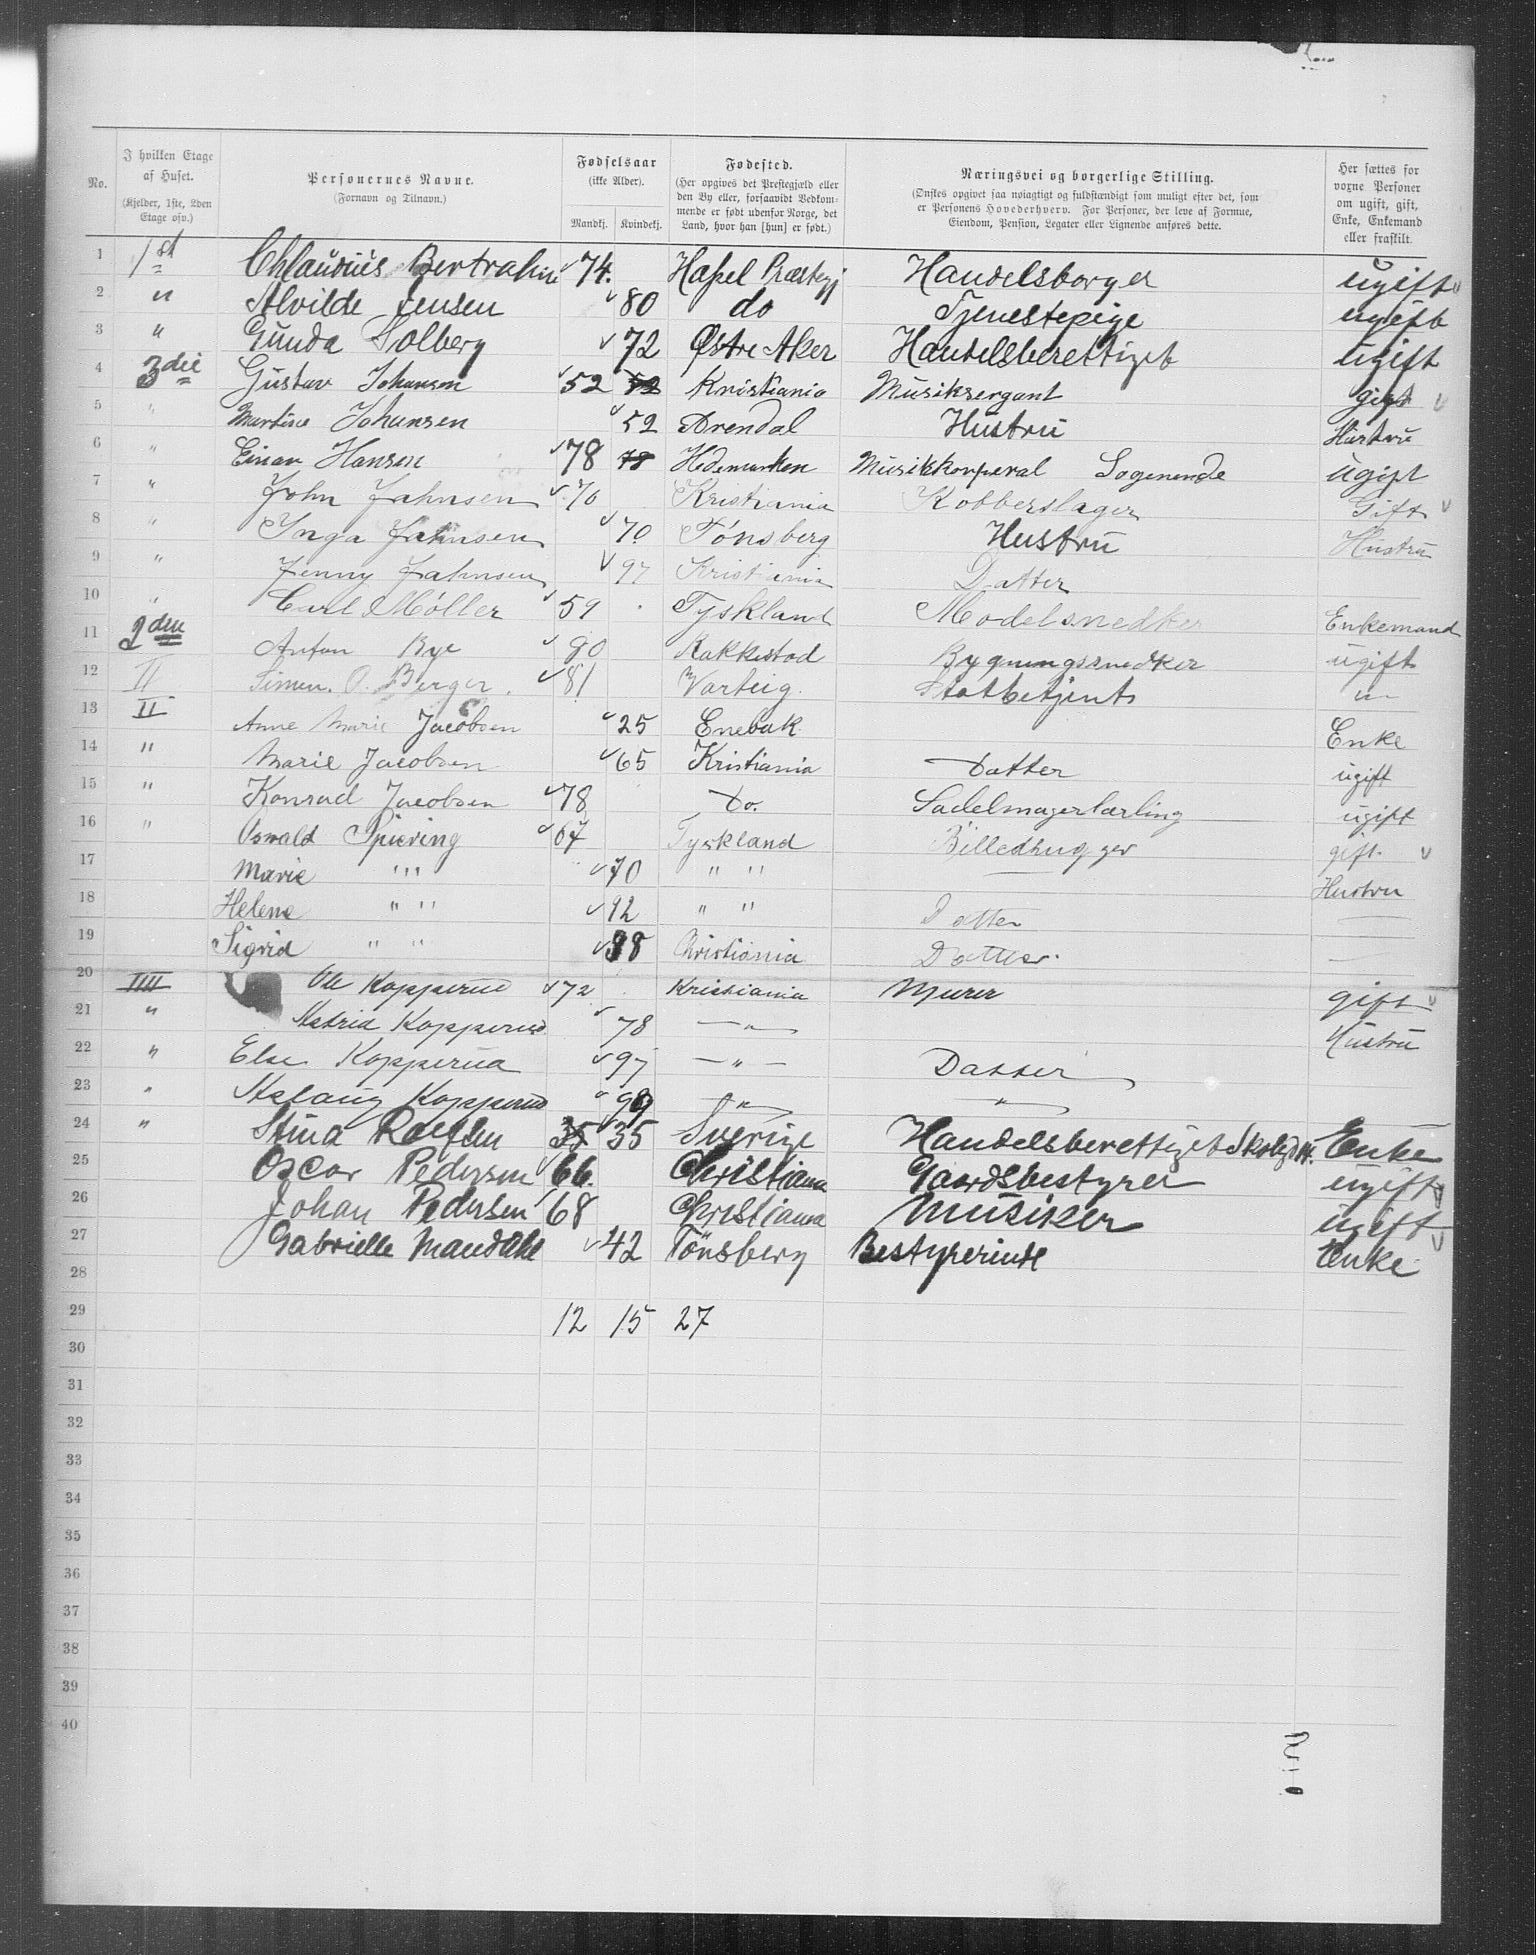 No.
I hvilken Etage af Huset. (Kjelder, 1ste, 2den Etage osv.)
Personernes Navne. (Fornavn og Tilnavn.)
Fødselsaar (ikke Alder). Mandkj. Kvindekj.
Fødested. (Her opgives det Prestegjæld eller den By eller, forsaavidt Vedkommende er født udenfor Norge, det Land, hvor han [hun] er født.)
Næringsvei og borgerlige Stilling. (Ønskes opgivet saa nøiagtigt og fuldstændigt som muligt efter det, som er Personens Hovederhverv. For Personer, der leve af Formue, Eiendom, Pension, Legater eller Lignende anføres dette.
Her sættes for voxne Personer om ugift, gift, Enke, Enkemand eller fraskilt.
1 1st Chlaudius Bertrahm 74. Hafsel Præstegj Handelsborger ugift
2 " Alvilde Jensen 80 do Tjenestepige ugift
3 " Gunda Solberg 72 Østre Aker Handelsberettiget ugift
4 3die Gustav Johansen 52 52 Kristiania Musiksergant gift
5 " Martine Johansen 52 Arendal Hustru Hustru
6 " Einar Hansen 78 78 Hedemarken Musikkorperal Logerende ugift
7 " John Jahnsen 70 Kristiania Kobberslager Gift
8 " Inga Jahnsen 70 Tønsberg Hustru Hustru
9 " Jenny Jahnsen 97 Kristiania Datter
10 " Carl Møller 59 Tyskland Modelsnedker Enkemand
11 2den Anton Bye 80 Rakkestad Bygningssnedker ugift
12 II Simen O. Berger. 81 Varteig. Statbetjent "
13 II Anne Marie Jacobsen 25 Enebak Enke
14 " Marie Jacobsen 65 Kristiania Datter ugift
15 " Konrad Jacobsen 78 Do. Sadelmagerlærling ugift
16 " Oswald Spiering 67 Tyskland Billedhugger gift
17 Marie " " 70 " " Hustru
18 Helene " " 92 " " Datter
19 Sigrid " " 98 Christiania Datter
20 IIII Ole Kopperud 72 Kristiania Murer gift
21 " Astrid Kopperud 78 — " — Hustru
22 " Else Kopperud 97 — " — Datter
23 " Aslaug Kopperud 99 — " — "
24 " Stina 35 35 Sverige Handelsberettiget Enke
25 Oscar Pedersen 66. Christiana Gaardsbestyrer ugift
26 Johan Pedersen 68 Christiana Musiker ugift
27 Gabrielle Mandahl 42 Tönsberg Bestyrerinde Enke
28
29 12 15 27
30
31
32
33
34
35
36
37
38
39
40